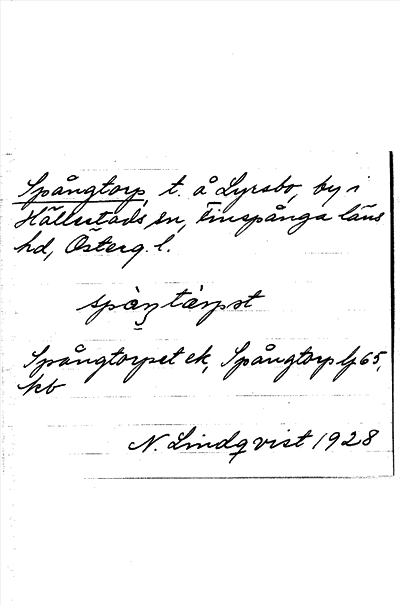 Spångtorp, t. å Lyrsbo, by i
Hällestads sn, Finspånga läns
hd, Österg. l.
spàŋtàrpət
Spångtorpet ek, Spångtorp lf 65,
kb
N. Lindqvist 1928